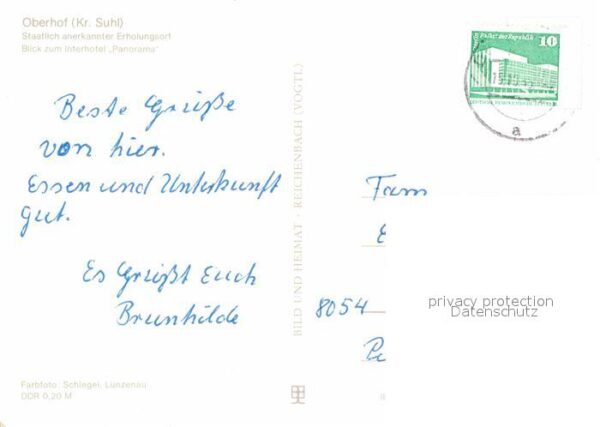 Oberhof (Kr. Suhl)
Staatlich anerkannter Erholungsort
Blick zum Interhotel „Panorama"
Beste Grüße
von hier.
Essen und Unterkunft
gut.
Es Grüßt Euch
Brunhilde
Farbfoto: Schlegel, Lunzenau
DDR 0,20 M
BILD UND HEIMAT · REICHENBACH (VOGTL)
Palast der Republik
10
a
Fam
8054
privacy protection
Datenschutz